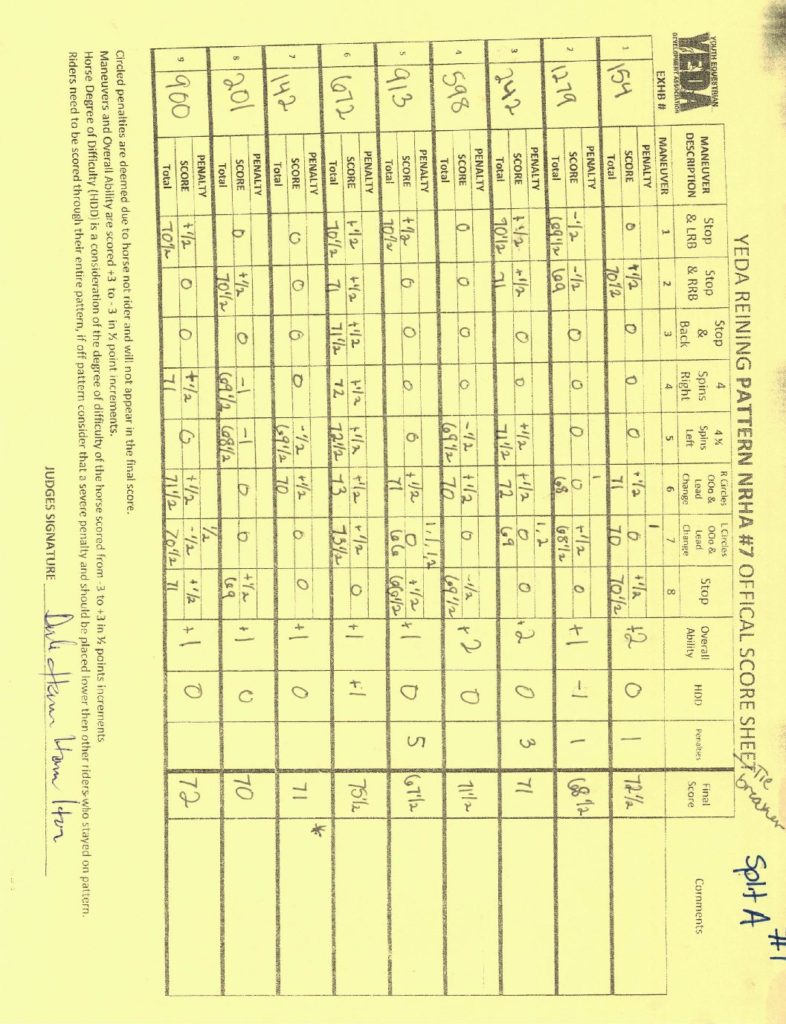 YEDA REINING PATTERN NRHA #7 OFFICAL SCORE SHEET
Split A #1
YOUTH EQUESTRIAN
YEDA
DEVELOPMENT ASSOCIATION
MANEUVER DESCRIPTION Stop & LRB Stop & RRB Stop & Back 4 Spins Right 4 ¼ Spins Left R Circles OOo & Lead Change L Circles OOo & Lead Change Stop Overall Ability HDD Penalties Final Score Comments
EXHB # MANEUVER 1 2 3 4 5 6 7 8
1 154
PENALTY 1
SCORE 0 +1/2 0 0 0 +1/2 0 +1/2 +2 0 1 72 1/2
Total 70 1/2 71 70 70 1/2
2 1279
PENALTY 1
SCORE -1/2 -1/2 0 0 0 0 +1/2 0 +1 -1 1 68 1/2
Total 69 1/2 69 68 68 1/2
3 242
PENALTY 1,2
SCORE +1/2 +1/2 0 0 +1/2 +1/2 0 0 +2 0 3 71
Total 70 1/2 71 71 1/2 72 69
4 598
PENALTY
SCORE 0 0 0 0 -1/2 +1/2 0 -1/2 +2 0 71 1/2
Total 69 1/2 70 69 1/2
5 913
PENALTY 1,1,1,2
SCORE +1/2 0 0 0 0 +1/2 0 +1/2 +1 0 5 67 1/2
Total 70 1/2 71 66 66 1/2
6 672
PENALTY
SCORE +1/2 +1/2 +1/2 +1/2 +1/2 +1/2 +1/2 0 +1 +1 75 1/2
Total 70 1/2 71 71 1/2 72 72 1/2 73 73 1/2
7 142
PENALTY
SCORE 0 0 0 0 -1/2 +1/2 0 0 +1 0 71 *
Total 69 1/2 70
8 201
PENALTY
SCORE 0 +1/2 0 -1 -1 0 0 +1/2 +1 0 70
Total 70 1/2 69 1/2 68 1/2 69
9 900
PENALTY 1/2
SCORE +1/2 0 0 +1/2 0 +1/2 -1/2 +1/2 +1 0 72
Total 70 1/2 71 71 1/2 70 1/2 71
Circled penalties are deemed due to horse not rider and will not appear in the final score.
Maneuvers and Overall Ability are scored +3 to - 3 in ½ point increments.
Horse Degree of Difficulty (HDD) is a consideration of the degree of difficulty of the horse scored from -3 to +3 in ½ points increments
Riders need to be scored through their entire pattern, if off pattern consider that a severe penalty and should be placed lower then other riders who stayed on pattern.
JUDGES SIGNATURE